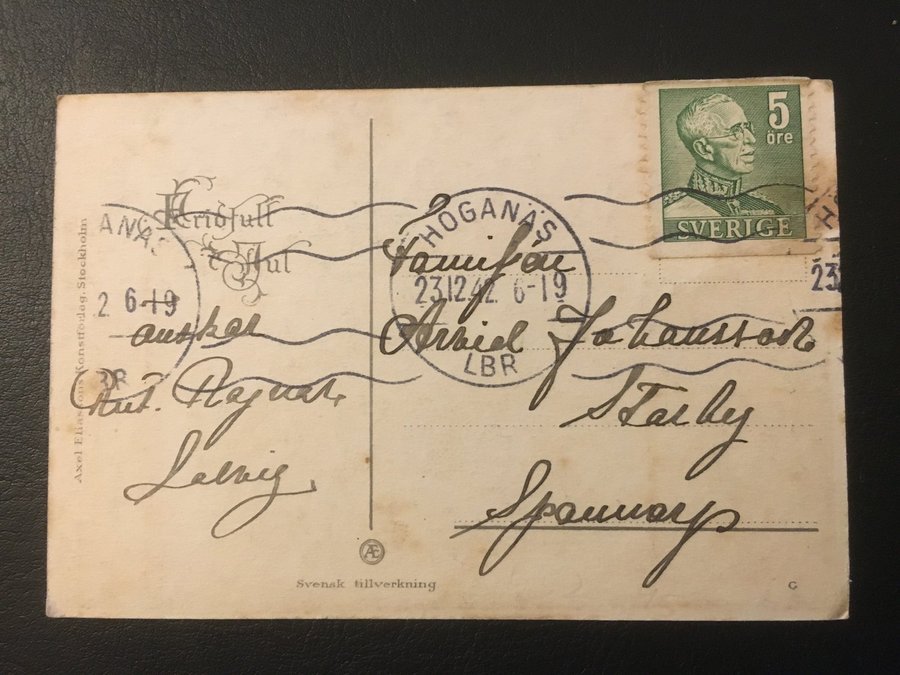 Fridfull
Jul
önskar
Rut. Ragnar.
Solvig.
Axel Eliassons Konstförlag. Stockholm
ANÄS
2 6-19
BR
HÖGANÄS
23.12.42 6-19
LBR
5
öre
SVERIGE
H
23
Familjen
Arvid Johansson
Starby
Spannarp
Æ
Svensk tillverkning
G